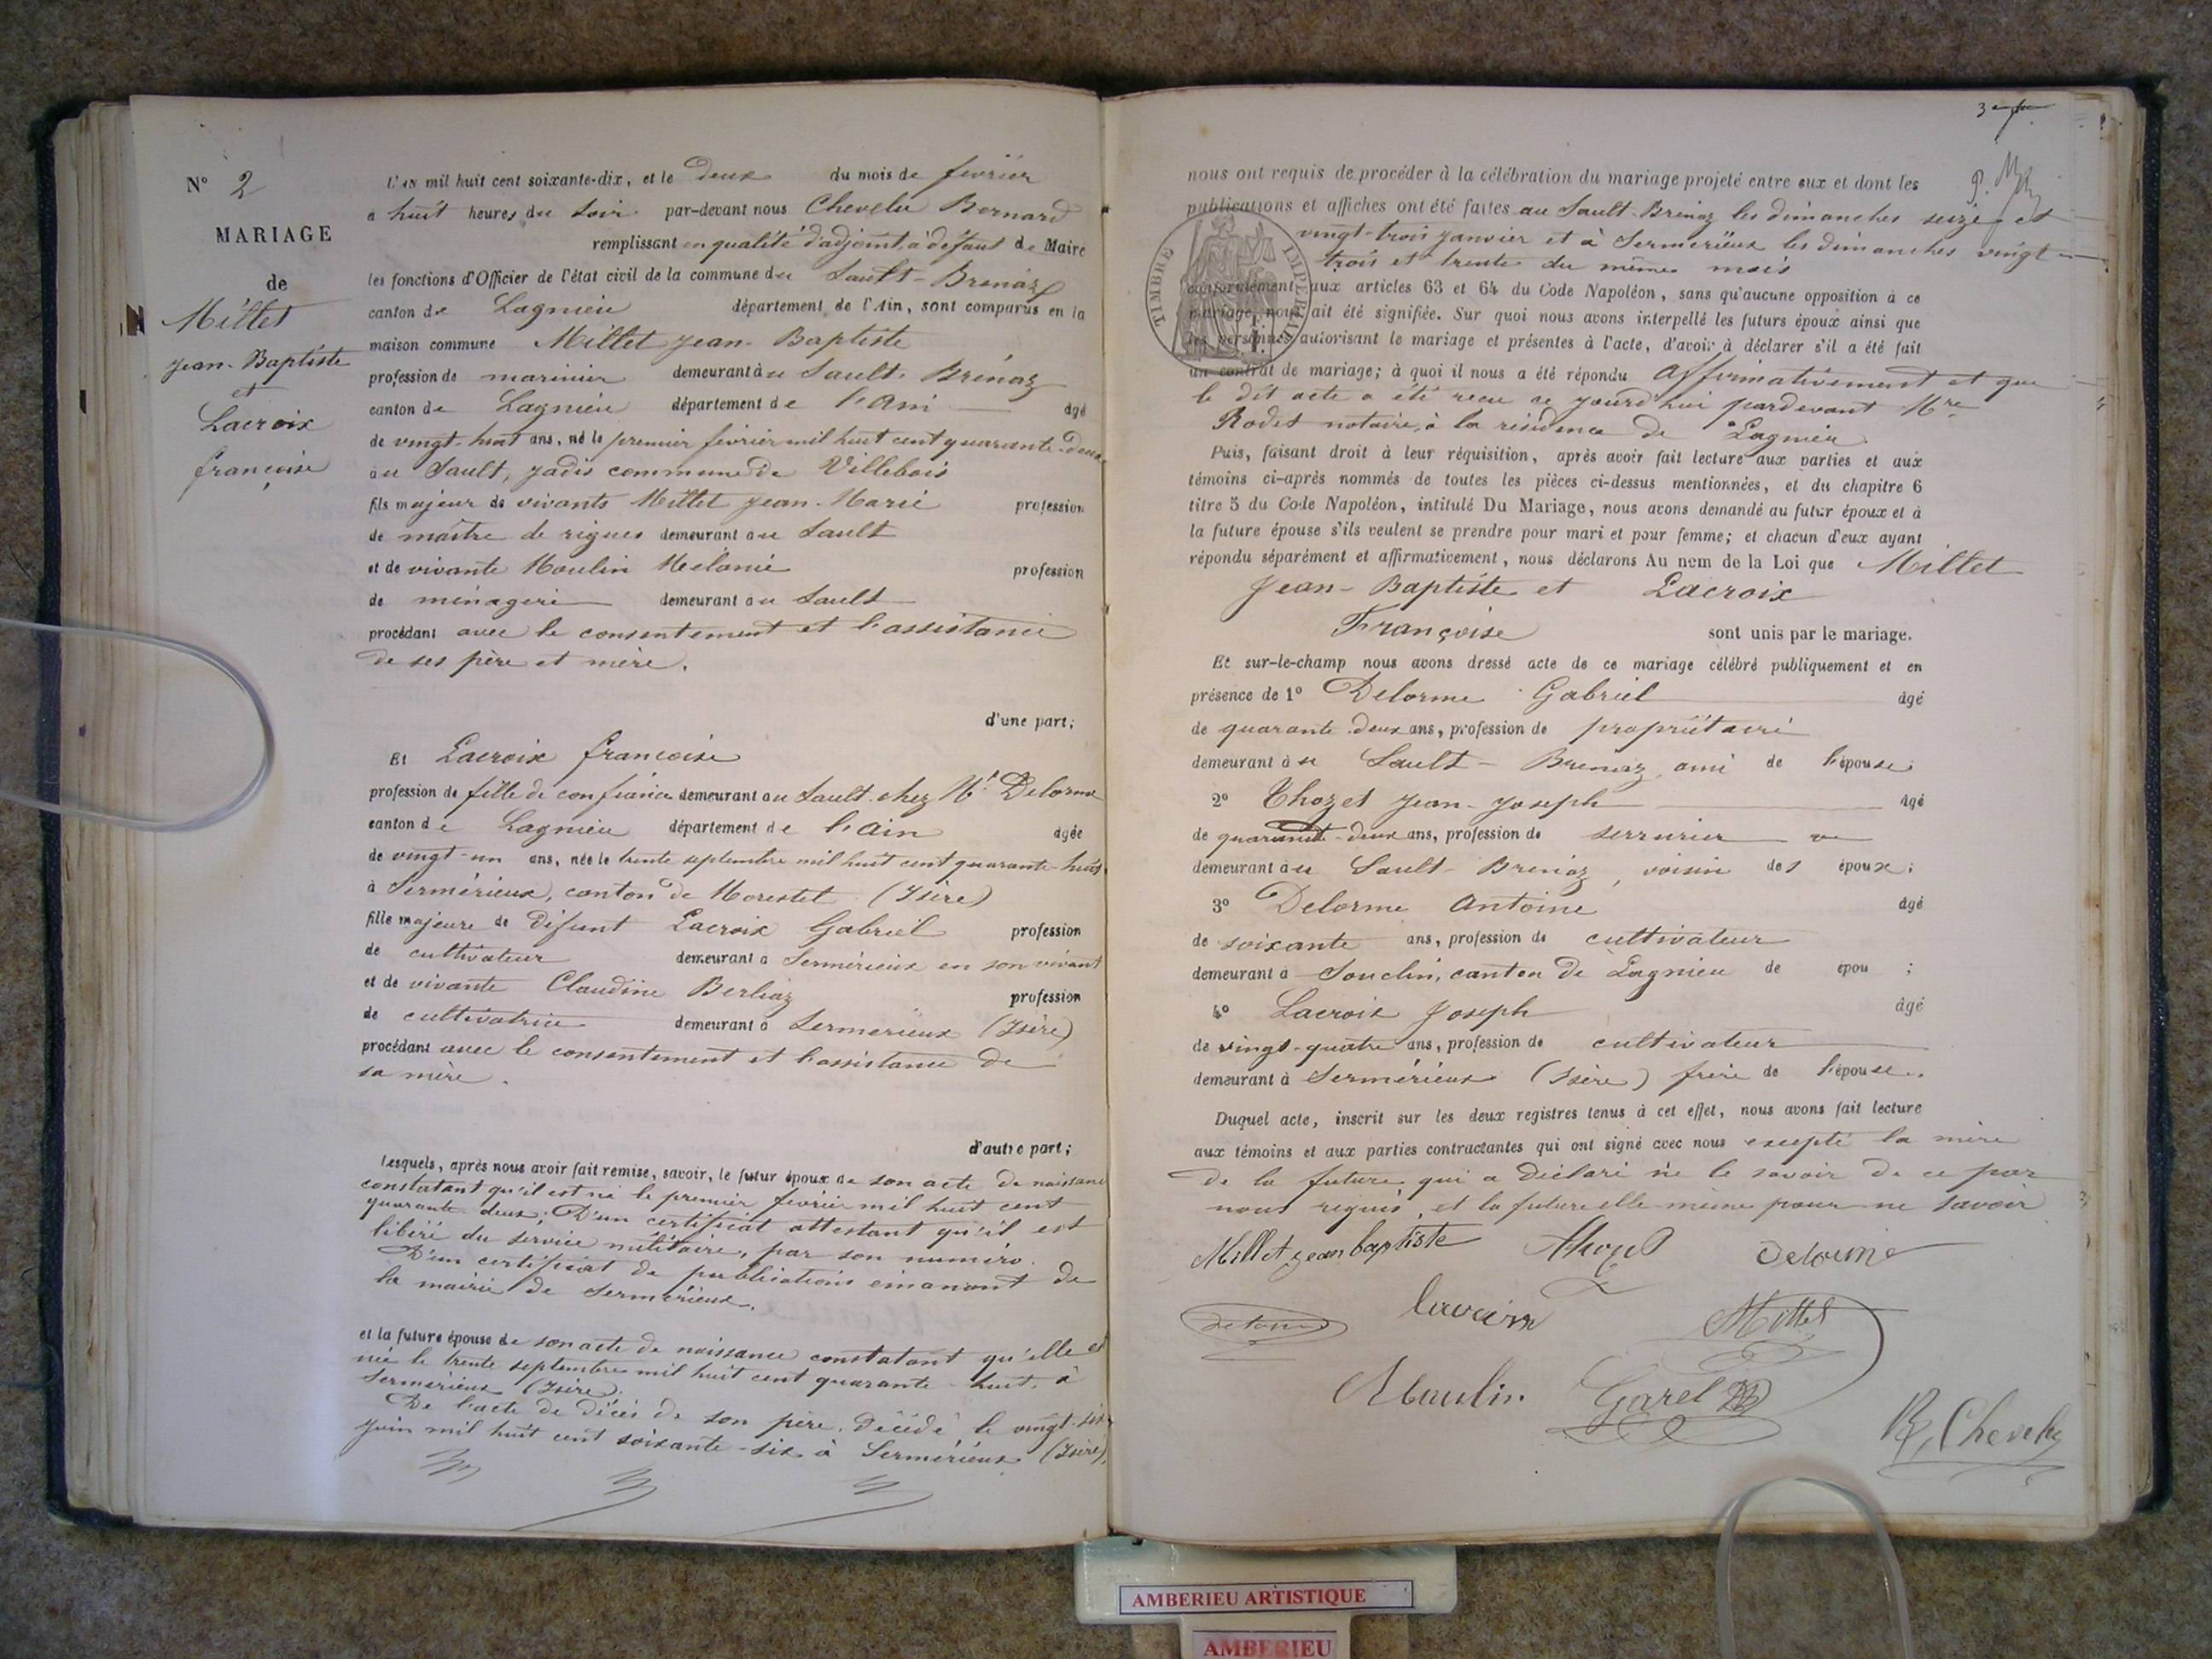 N° 2
MARIAGE
de
Millet
Jean-Baptiste
et
Lacroix
françoise
L'AN mil huit cent soixante-dix, et le deux du mois de février
à huit heures du soir par-devant nous Chevelu Bernard
remplissant en qualité d'adjoint, à défaut de Maire
les fonctions d'Officier de l'état civil de la commune du Sault-Brénaz
canton de Lagnieu département de l'Ain, sont comparus en la
maison commune Millet Jean-Baptiste
profession de marinier demeurant au Sault-Brénaz
canton de Lagnieu département de l'Ain âgé
de vingt-huit ans, né le premier février mil huit cent quarante-deux
au Sault, jadis commune de Villebois
fils majeur de vivants Millet Jean-Marie profession
de maître de rigues demeurant au Sault
et de vivante Moulin Mélanie profession
de ménagère demeurant au Sault
procédant avec le consentement et l'assistance
de ses père et mère.
d'une part;
Et Lacroix françoise
profession de fille de confiance demeurant au Sault chez Mr Delorme
canton de Lagnieu département de l'Ain âgée
de vingt-un ans, née le trente septembre mil huit cent quarante-huit
à Sermérieux, canton de Morestel (Isère)
fille majeure de défunt Lacroix Gabriel profession
de cultivateur demeurant à Sermérieux en son vivant
et de vivante Claudine Berliaz profession
de cultivatrice demeurant à Sermérieux (Isère)
procédant avec le consentement et l'assistance de
sa mère.
d'autre part;
Lesquels, après nous avoir fait remise, savoir, le futur époux de son acte de naissance
constatant qu'il est né le premier février mil huit cent
quarante-deux; D'un certificat attestant qu'il est
libéré du service militaire, par son numéro.
D'un certificat de publications émanant de
la mairie de Sermérieux.
et la future épouse de son acte de naissance constatant qu'elle est
née le trente septembre mil huit cent quarante-huit, à
Sermérieux (Isère).
De l'acte de décès de son père, décédé le vingt-six
juin mil huit cent soixante-six à Sermérieux (Isère),
nous ont requis de procéder à la célébration du mariage projeté entre eux et dont les
publications et affiches ont été faites au Sault-Brénaz les dimanches seize et
vingt-trois janvier et à Sermérieux les dimanches vingt-
trois et trente du même mois
TIMBRE IMPÉRIAL
conformément aux articles 63 et 64 du Code Napoléon, sans qu'aucune opposition à ce
mariage nous ait été signifiée. Sur quoi nous avons interpellé les futurs époux ainsi que
les personnes autorisant le mariage et présentes à l'acte, d'avoir à déclarer s'il a été fait
un contrat de mariage; à quoi il nous a été répondu Affirmativement et que
le dit acte a été reçu ce jourd'hui pardevant Mre
Rodet notaire, à la résidence de Lagnieu.
Puis, faisant droit à leur réquisition, après avoir fait lecture aux parties et aux
témoins ci-après nommés de toutes les pièces ci-dessus mentionnées, et du chapitre 6
titre 5 du Code Napoléon, intitulé Du Mariage, nous avons demandé au futur époux et à
la future épouse s'ils veulent se prendre pour mari et pour femme; et chacun d'eux ayant
répondu séparément et affirmativement, nous déclarons Au nom de la Loi que Millet
Jean-Baptiste et Lacroix
Françoise sont unis par le mariage.
Et sur-le-champ nous avons dressé acte de ce mariage célébré publiquement et en
présence de 1° Delorme Gabriel âgé
de quarante-deux ans, profession de propriétaire
demeurant au Sault-Brénaz, ami de l'épouse;
2° Thozet Jean-Joseph âgé
de quarante-deux ans, profession de serrurier
demeurant au Sault-Brénaz, voisin des époux;
3° Delorme Antoine âgé
de soixante ans, profession de cultivateur
demeurant à Souclin, canton de Lagnieu de épou ;
4° Lacroix Joseph âgé
de vingt-quatre ans, profession de cultivateur
demeurant à Sermérieux (Isère) frère de l'épouse.
Duquel acte, inscrit sur les deux registres tenus à cet effet, nous avons fait lecture
aux témoins et aux parties contractantes qui ont signé avec nous excepté la mère
de la future qui a déclaré ne le savoir de ce par
nous requis, et la future elle-même pour ne savoir
Millet jean baptiste Thozet Delorme
Delorme Millet
Moulin Garel B, Chevelu
AMBERIEU ARTISTIQUE
AMBERIEU